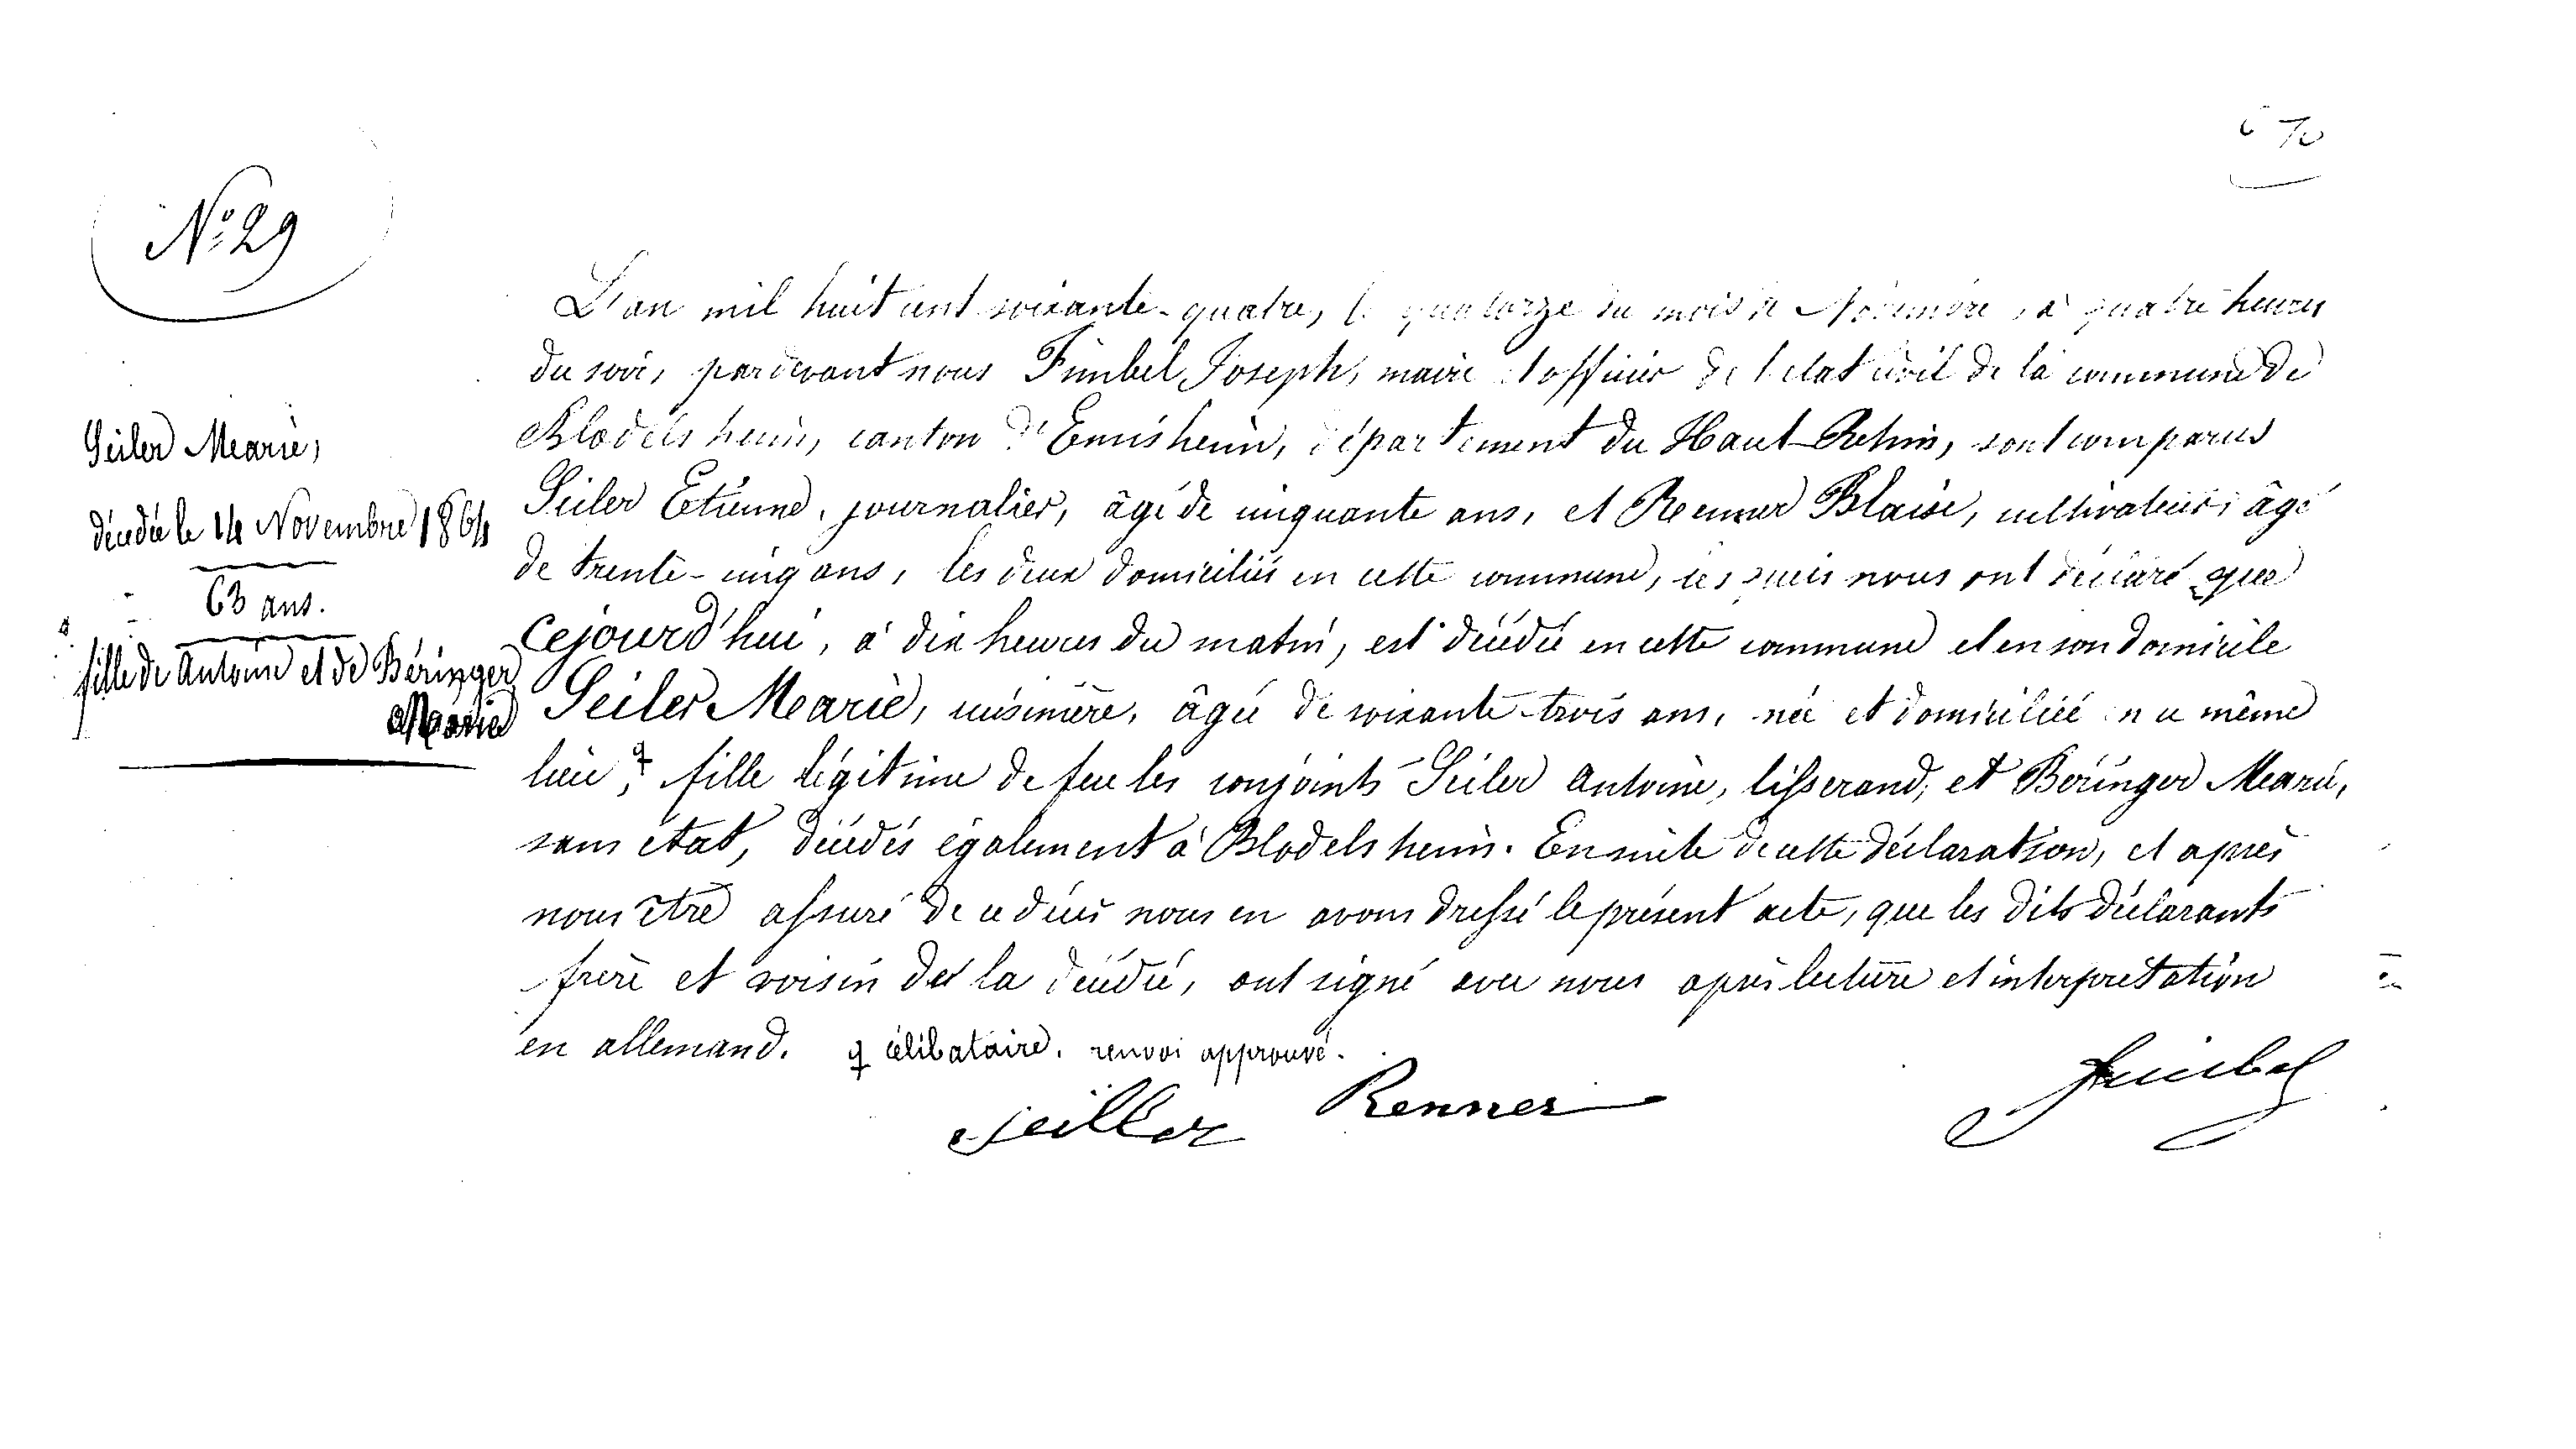 70
N° 29
Seiler Marie,
décédée le 14 Novembre 1864
63 ans.
fille de Antoine et de Béringer
Marie
L'an mil huit cent soixante-quatre, le quatorze du mois de Novembre, à quatre heures
du soir, pardevant nous Fimbel Joseph, maire et officier de l'état civil de la commune de
Blodelsheim, canton d'Ensisheim, département du Haut-Rhin, sont comparus
Seiler Etienne, journalier, âgé de cinquante ans, et Renner Blaise, cultivateur, âgé
de trente-cinq ans, les deux domiciliés en cette commune, lesquels nous ont déclaré que
Cejourd'hui, à dix heures du matin, est décédée en cette commune et en son domicile
Seiler Marie, cuisinière, âgée de soixante-trois ans, née et domiciliée en ce même
lieu, fille légitime de feu les conjoints Seiler Antoine, tisserand, et Béringer Marie,
sans état, décédés également à Blodelsheim. Ensuite de cette déclaration, et après
nous être assuré de ce décès nous en avons dressé le présent acte, que les dits déclarants
frère et voisin de la décédée, ont signé avec nous après lecture et interprétation
en allemand. célibataire. renvoi approuvé.
Seiller Renner Fimbel